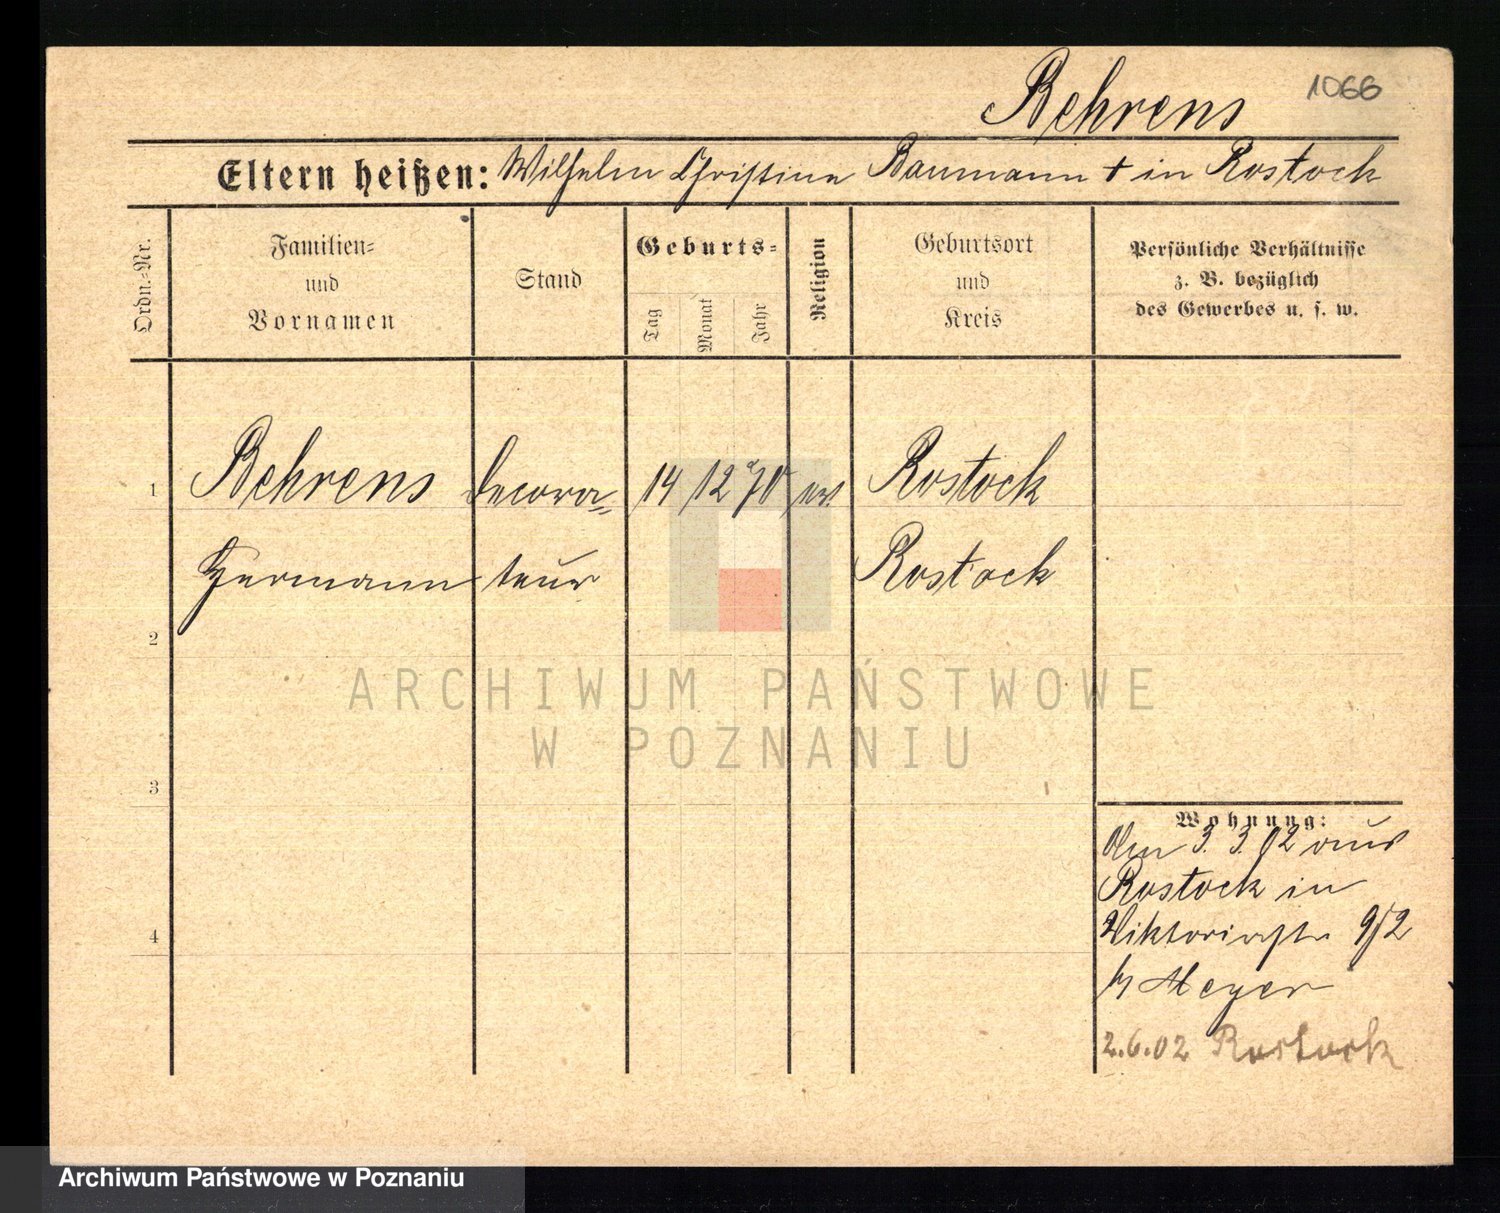 Behrens 1066
Eltern heißen: Wilhelm Christine Baumann + in Rostock
Ordn.-Nr.
Familien-
und
Vornamen
Stand
Geburts-
Tag
Monat
Jahr
Religion
Geburtsort
und
Kreis
Persönliche Verhältnisse
z. B. bezüglich
des Gewerbes u. s. w.
1 Behrens Decora= 14 12 70 ev. Rostock
Hermann teur Rostock
2
ARCHIWUM PAŃSTWOWE
W POZNANIU
3
Wohnung:
den 3. 3. 02 aus
Rostock in
Viktoriastr 9/2
4
b/ Meyer
2.6.02 Rostock
Archiwum Państwowe w Poznaniu